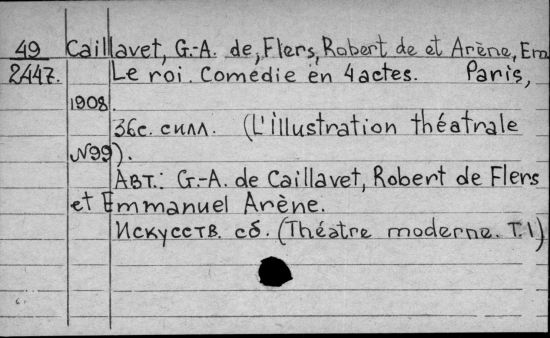 49 Caillavet, G.-A. de, Flers, Robert de et Arène, Em
2447. Le roi. Comédie en 4 actes. Paris,
1908.
36с. силл. (L'illustration théatrale
N99).
Авт.: G.-A. de Caillavet, Robert de Flers
et Emmanuel Arène.
Искусств. сб. (Théatre moderne. T.1)